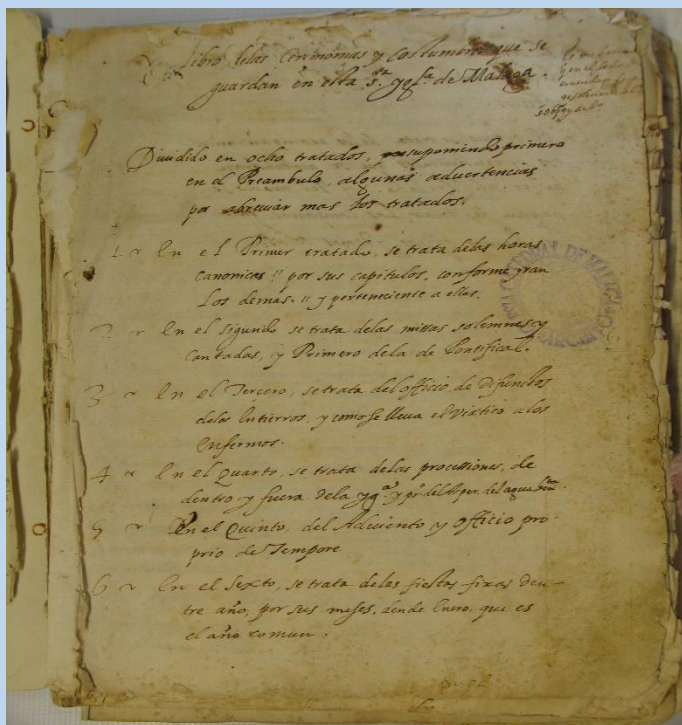 Libro delas Cerimonias y Costumbres que se
guardan en esta s.ta ygl.a de Malaga.
Diuidido en ocho tratados, presuponiendo primero
en el Preambulo, algunas aduertencias
por abreuiar mas los tratados.
1 En el Primer tratado, se trata delas horas
canonicas por sus capitulos, conforme yran
Los demas. y perteneciense a ellas.
2 En el segundo se trata delas missas solemnes y
Cantadas, y Primero dela de Pontifical.
3 En el Tercero, se trata del officio de Difunctos
delos Entierros, y como se lleua el Viatico a los
Enfermos.
4 En el Quarto, se trata delas processiones, de
dentro y fuera dela yg.a y pr. del Asper. del agua
5 En el Quinto, del Aduiento y Officio pro-
prio de Tempore
6 En el Sexto, se trata delas fiestas fixas den-
tre año, por sus meses, desde Enero, que es
el año comun.
CATEDRAL DE MALAGA